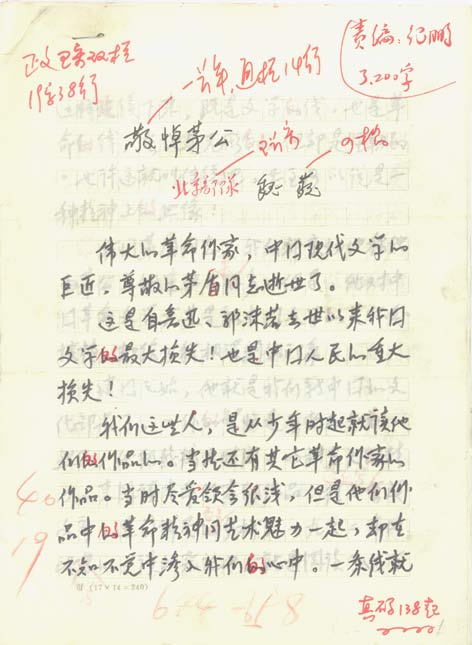 19字38行
责编：纪鹏
3,200字
敬悼茅公
北京部队 魏巍
伟大的革命作家，中国现代文学的
巨匠，尊敬的茅盾同志逝世了。
这是自鲁迅、郭沫若去世以来我国
文学的最大损失！也是中国人民的重大
损失！
我们这些人，是从少年时起就读他
们的作品的。当然还有其它革命作家的
作品。当时尽管领会很浅，但是他们作
品中的革命精神同艺术魅力一起，却在
不知不觉中渗入我们的心中。一条线就
40
19
(17×14=240)
138起